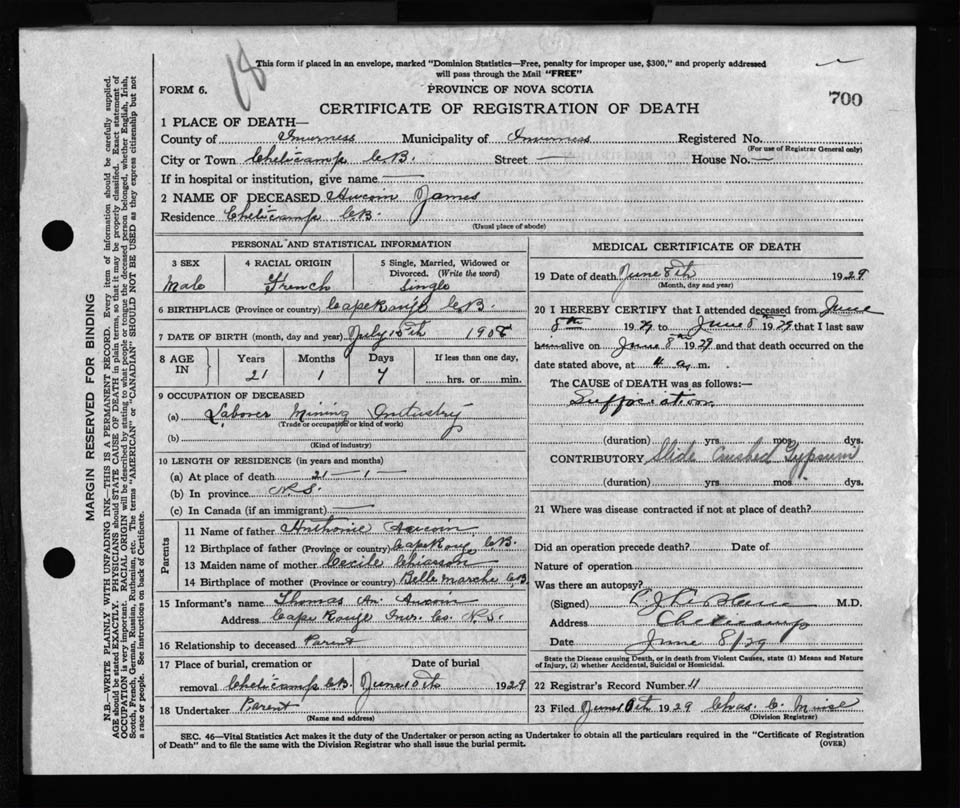 18
This form if placed in an envelope, marked "Dominion Statistics—Free, penalty for improper use, $300," and properly addressed
will pass through the Mail "FREE"
FORM 6.
PROVINCE OF NOVA SCOTIA
700
CERTIFICATE OF REGISTRATION OF DEATH
1 PLACE OF DEATH—
County of Inverness Municipality of Inverness Registered No.
(For use of Registrar General only)
City or Town Cheticamp C.B. Street — House No. —
If in hospital or institution, give name —
2 NAME OF DECEASED Aucoin James
Residence Cheticamp C.B.
(Usual place of abode)
PERSONAL AND STATISTICAL INFORMATION
3 SEX 4 RACIAL ORIGIN 5 Single, Married, Widowed or
Divorced. (Write the word)
Male French Single
6 BIRTHPLACE (Province or country) Cape Rouge C.B.
7 DATE OF BIRTH (month, day and year) July 15th 1908
8 AGE IN Years Months Days If less than one day,
21 1 7 hrs. or min.
9 OCCUPATION OF DECEASED
(a) Laborer Mining Industry
(Trade or occupation or kind of work)
(b)
(Kind of industry)
10 LENGTH OF RESIDENCE (in years and months)
(a) At place of death 21 — 1 —
(b) In province N.S.
(c) In Canada (if an immigrant) —
Parents
11 Name of father Anthonie Aucoin
12 Birthplace of father (Province or country) Cape Roug C.B.
13 Maiden name of mother Cecile Chiasson
14 Birthplace of mother (Province or country) Belle Marche C.B.
15 Informant's name Thomas An. Aucoin
Address Cape Rouge Inver. Co. N.S.
16 Relationship to deceased Parent
17 Place of burial, cremation or Date of burial
removal Cheticamp C.B. June 10th 1929
18 Undertaker Parent
(Name and address)
MEDICAL CERTIFICATE OF DEATH
19 Date of death June 8th 1929
(Month, day and year)
20 I HEREBY CERTIFY that I attended deceased from June
8th 1929 to June 8 1929 that I last saw
him alive on June 8th 1929 and that death occurred on the
date stated above, at 4 a. m.
The CAUSE OF DEATH was as follows:—
Suffocation
(duration) yrs. mos. dys.
CONTRIBUTORY Slide Crushed Gypsum
(duration) yrs. mos. dys.
21 Where was disease contracted if not at place of death?
Did an operation precede death? Date of
Nature of operation
Was there an autopsy?
(Signed) M.D.
Address Cheticamp
Date June 8/29
State the Disease causing Death, or in death from Violent Causes, state (1) Means and Nature
of Injury, (2) whether Accidental, Suicidal or Homicidal.
22 Registrar's Record Number 11
23 Filed June 1929 Chas. C.
(Division Registrar)
SEC. 46—Vital Statistics Act makes it the duty of the Undertaker or person acting as Undertaker to obtain all the particulars required in the "Certificate of Registration
of Death" and to file the same with the Division Registrar who shall issue the burial permit.
(OVER)
MARGIN RESERVED FOR BINDING
N.B.—WRITE PLAINLY WITH UNFADING INK—THIS IS A PERMANENT RECORD. Every item of information should be carefully supplied.
AGE should be stated EXACTLY. PHYSICIANS should STATE CAUSE OF DEATH in plain terms, so that it may be properly classified. Exact statement of
OCCUPATION is very important. RACIAL ORIGIN will be described by stating to what people or tongue the deceased person belonged, whether English, Irish,
Scotch, French, German, Russian, Ruthenian, etc. The terms "AMERICAN" or "CANADIAN" SHOULD NOT BE USED as they express citizenship but not
a race or people. See instructions on back of Certificate.